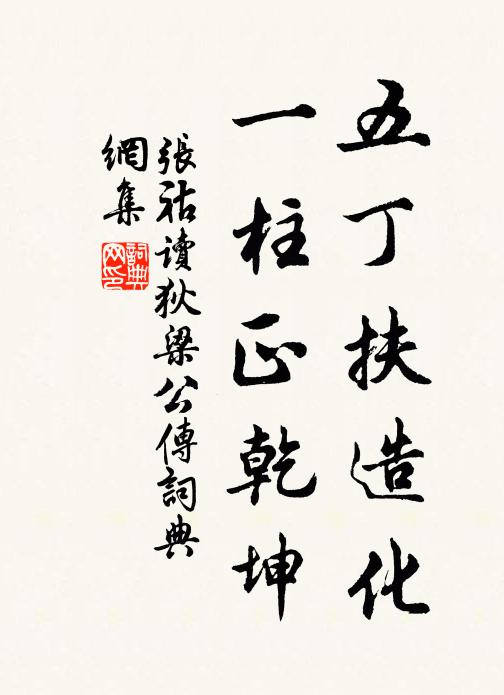 五丁扶造化
一柱正乾坤
張祜讀狄梁公傳詞典
網集
詞典
网印